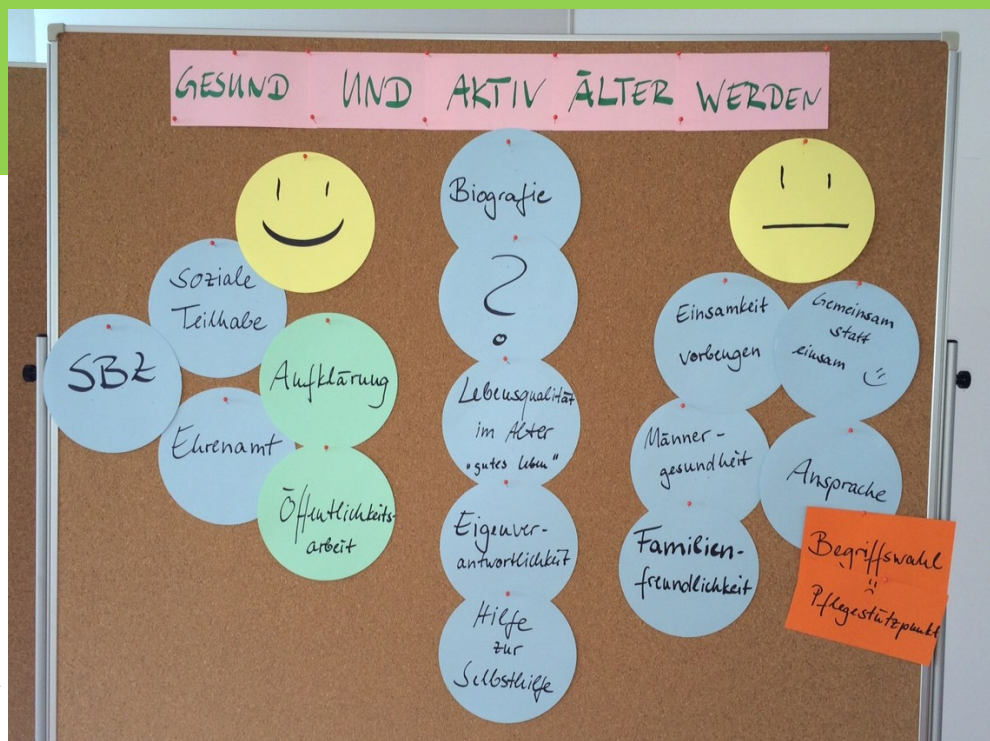 GESUND UND AKTIV ÄLTER WERDEN
SBZ
Soziale
Teilhabe
Ehrenamt
Aufklärung
Öffentlichkeits-
arbeit
Biografie
?
Lebensqualität
im Alter
"gutes Leben"
Eigenver-
antwortlichkeit
Hilfe
zur
Selbsthilfe
Einsamkeit
vorbeugen
Gemeinsam
statt
einsam
Männer-
gesundheit
Ansprache
Familien-
freundlichkeit
Begriffswahl
Pflegestützpunkt